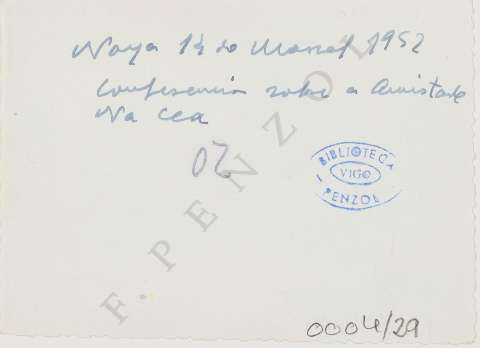 Noya 14 de Marzal 1952
Conferencia sobre a Amistade
Na cea
02
BIBLIOTECA
VIGO
PENZOL
F. PENZOL
0004/29